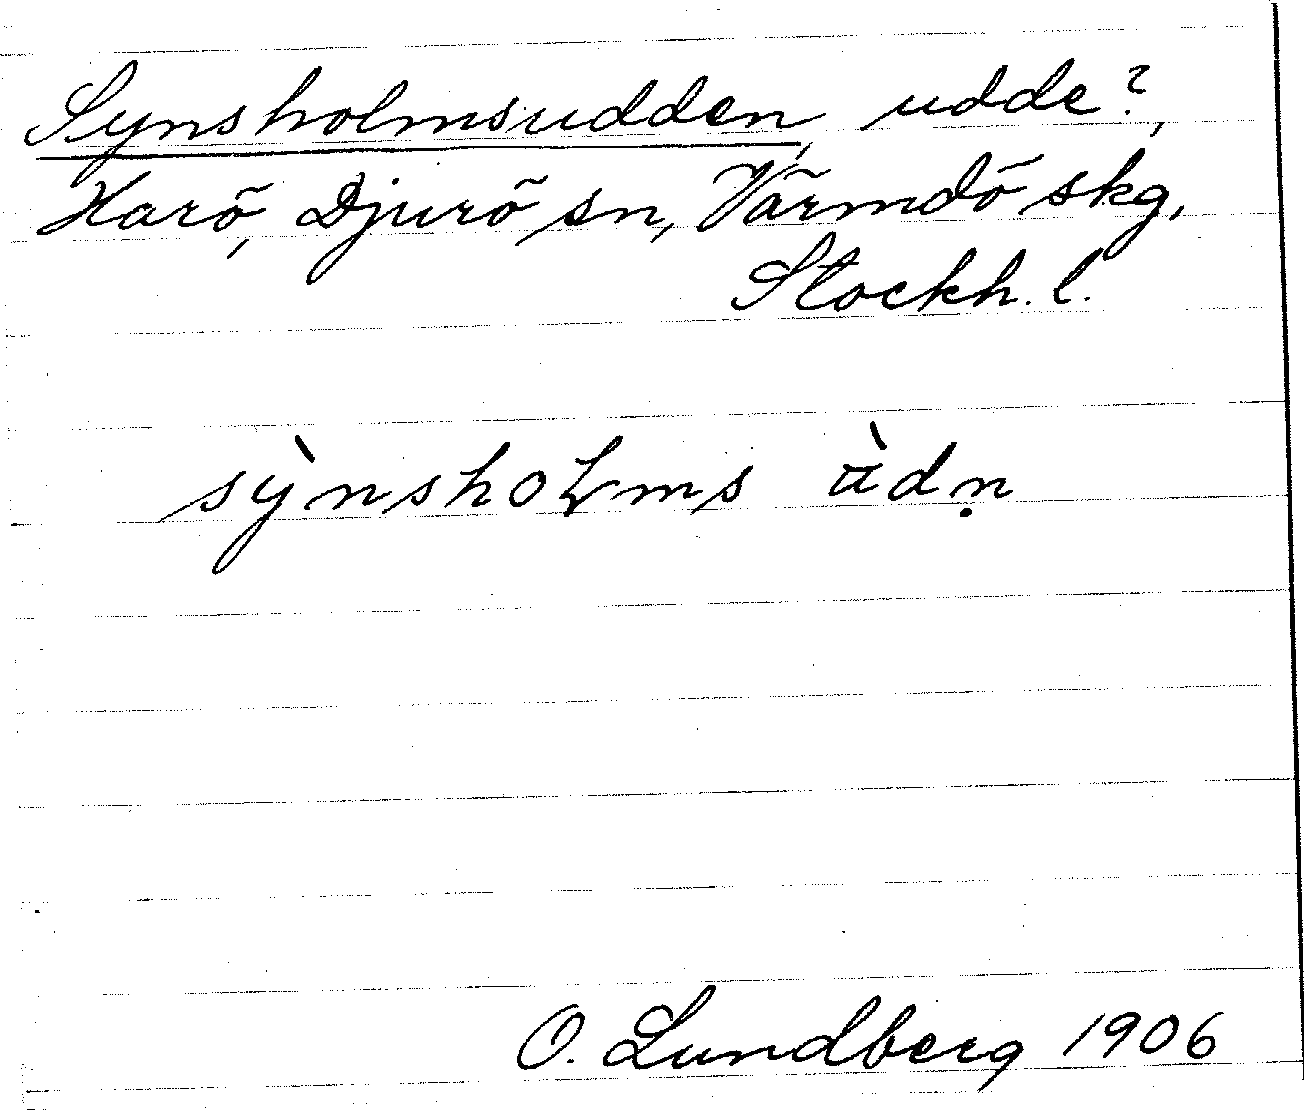 Synsholmsudden, udde?,
Harö, Djurö sn, Värmdö skg,
Stockh. l.
sỳnshoɫms ɑ̀dṇ
O. Lundberg 1906